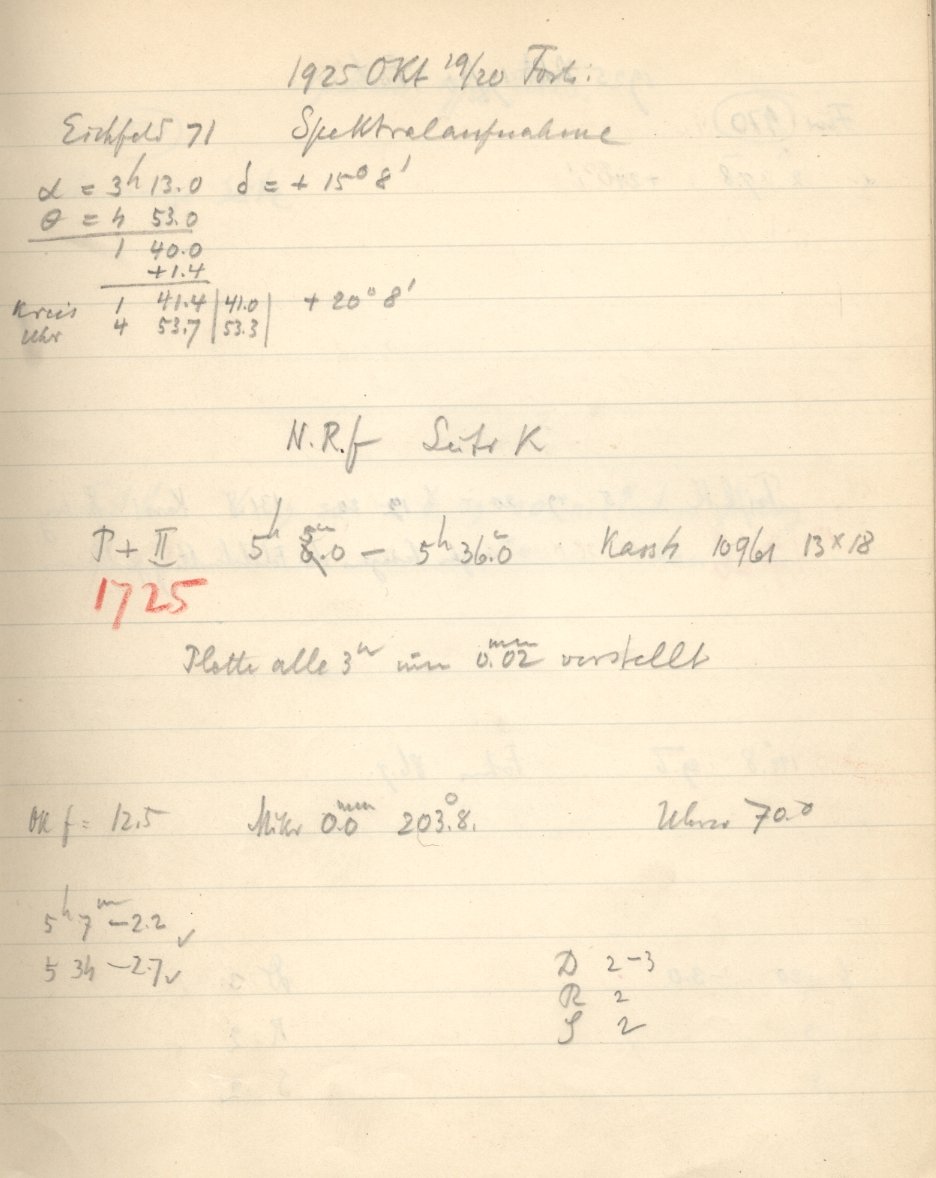 1925 Okt 19/20 Forts:
Eichfeld 71 Spektralaufnahme
α = 3h 13.0 δ = + 15° 8'
θ = 4 53.0
1 40.0
+1.4
Kreis 1 41.4 | 41.0 | + 20° 8'
Uhr 4 53.7 | 53.3 |
N.R.f Seite K
P + II 5h 5m.0 – 5h 36m.0 10961 13 × 18
1725
Platte alle 3m um 0.02mm verstellt
Ok f = 12.5 Mikr 0.0mm 203°.8. 70.0
5h 7m –2.2 ✓
5 34 –2.7 ✓
D 2–3
R 2
S 2